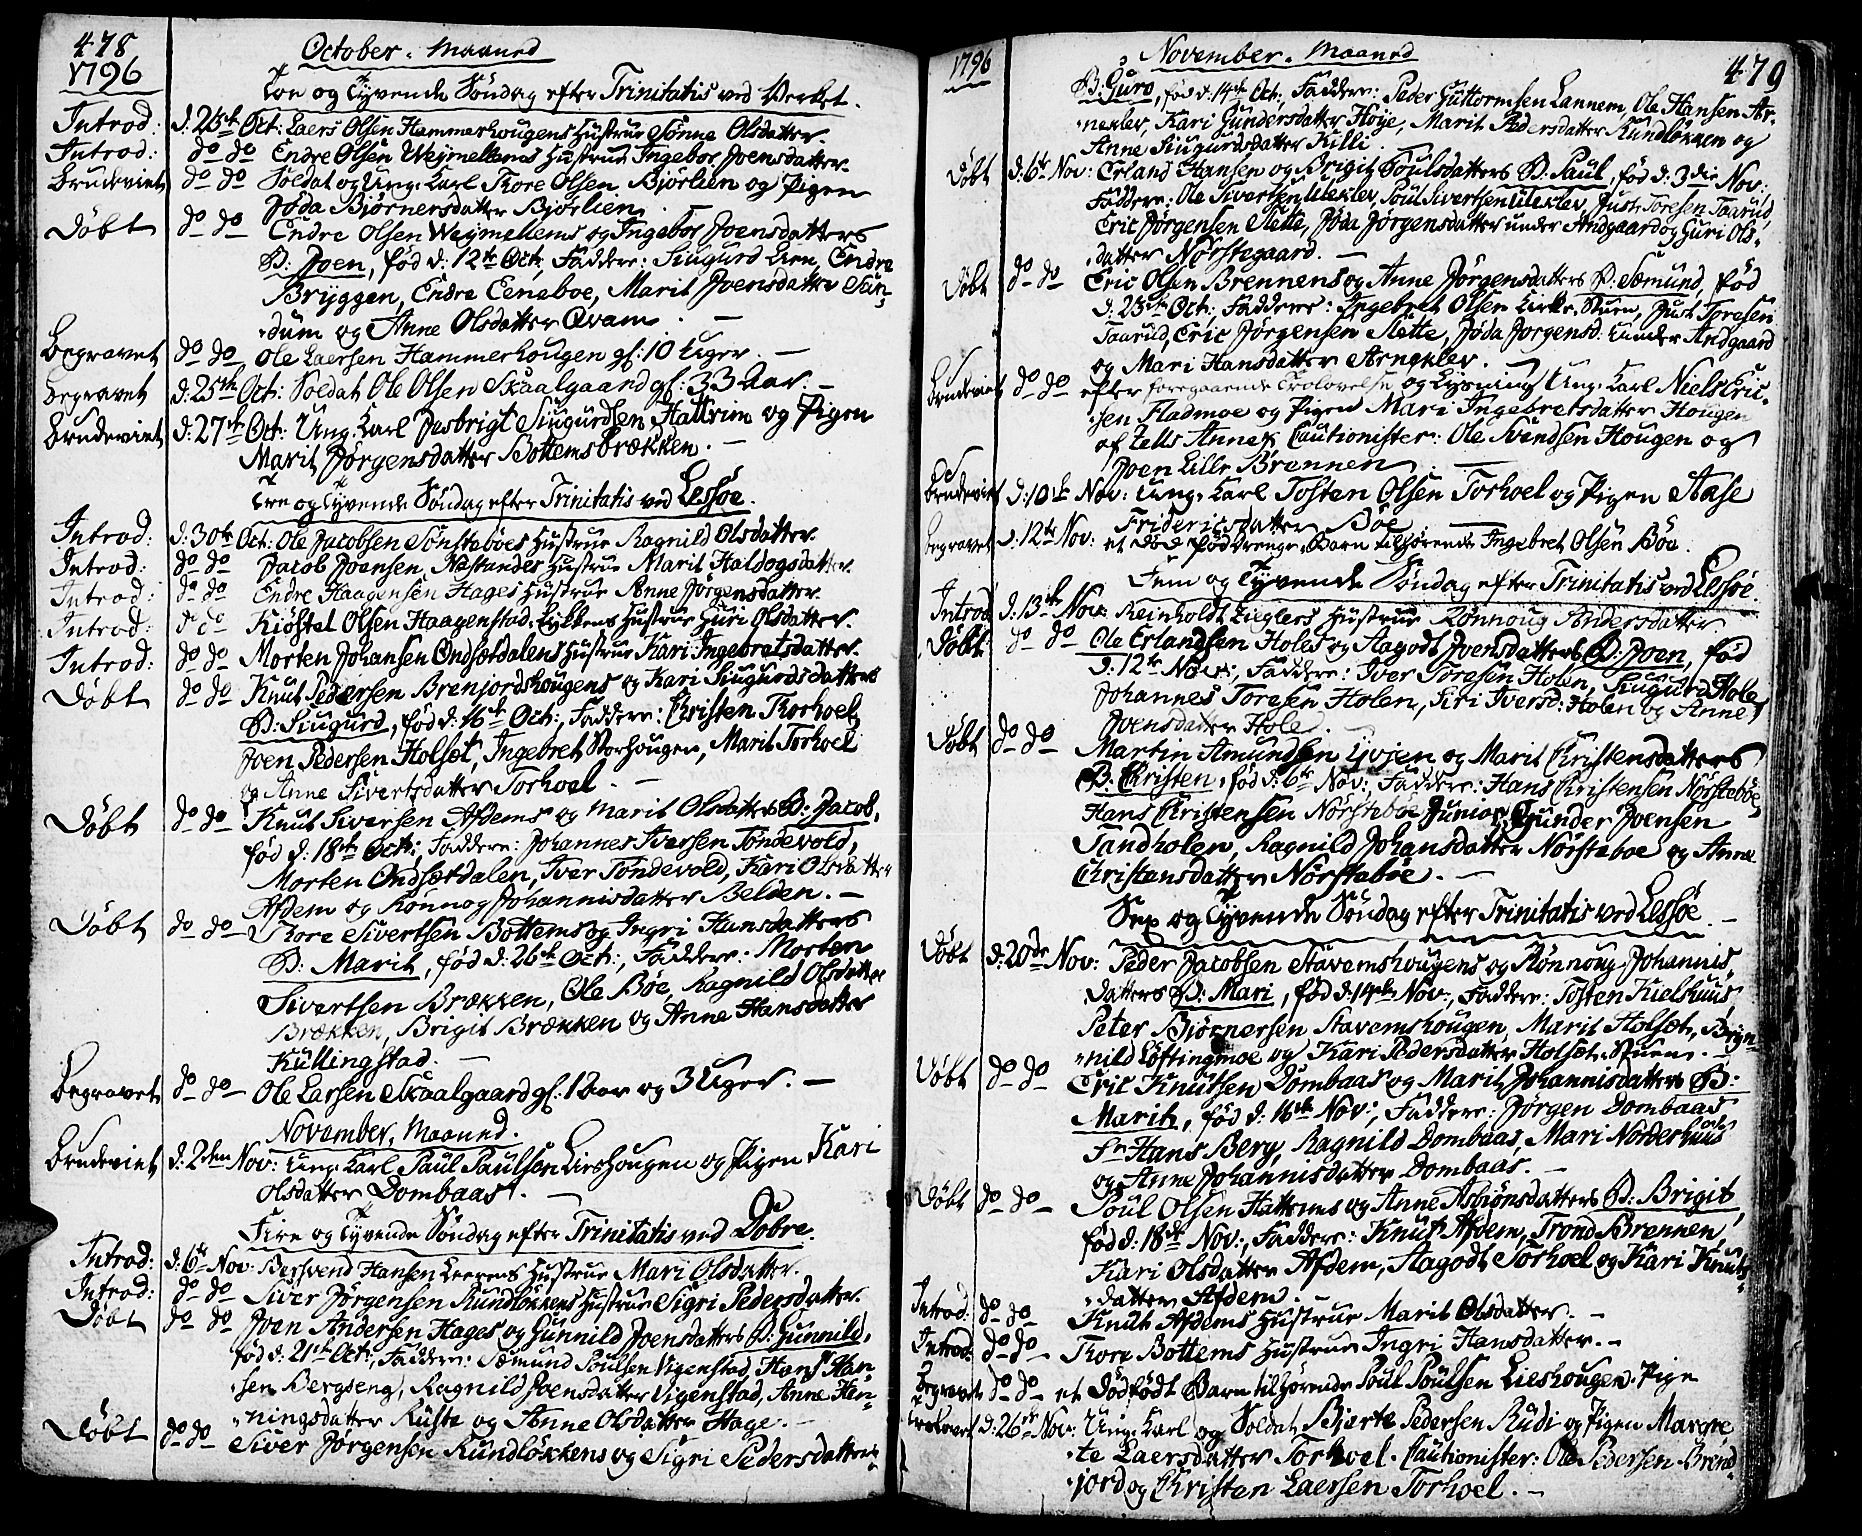 478
October. Maaned
1796
Toe og Tyvende Søndag efter Trinitatis ved Verket.
Introd: d: 23de Oct: Laers Olsen Hammershougens Hustrue Sønne Olsdatter.
Introd: do do Endre Olsen Weymellems Hustrue Ingebor Joensdatter
Brudeviet do do Soldat og Ung. Karl Thore Olsen Bjørlien og Pigen
Jøda Bjørnersdatter Bjørlien.
Døbt do do Endre Olsen Weymellems og Ingebor Joensdatters
B: Joen, fød d: 12te Oct, Faddere: Siugurd Lien, Endre
Bryggen, Endre Eeneboe, Marit Joensdatter Sun-
dum og Anne Olsdatter Qvam. —
Begravet do do Ole Laersen Hammerhougen gl: 10 Uger. —
Begravet d: 25de Oct: Soldat Ole Olsen Skaalgaard gl: 33 Aar. —
Brudeviet d: 27de Oct: Ung. Karl Jesbrigt Siugurdsen Hattrim og Pigen
Marit Jørgensdatter Bottemsbrækken. —
Tre og Tyvende Søndag efter Trinitatis ved Lessøe.
Introd: d: 30te Oct: Ole Jacobsen Sønstabøes Hustrue Ragnild Olsdatter.
Introd: do do Jacob Joensen Næstandes Hustrue Marit Haldogsdatter.
Introd: do do Endre Haagensen Hages Hustrue Anne Jørgensdatter.
Introd: do do Kiøstel Olsen Haagenstad. Lykkens Hustrue Guri Olsdatter.
Introd: do do Morten Johansen Ondsætdalens Hustrue Kari Ingebretsdatter.
Døbt do do Knut Pedersen Brenjordshougens og Kari Siugurdsdatters
B: Siugurd, fød d: 16te Oct:, Faddere: Christen Thorhoel,
Joen Pedersen Holset, Ingebret Storhougen, Marit Torhoel
og Anne Sivertsdatter Torhoel. —
Døbt do do Knut Siversen Afdems og Marit Olsdatters B: Jacob,
fød d: 18de Oct:, Faddere: Johannes Iversen Tøndevold,
Morten Ondsætdalen, Iver Tøndevold, Kari Olsdatter
Afdem og Rønnog Johannisdatter Belden. —
Døbt do do Thore Sivertsen Bottems og Ingri Hansdatters
B: Marit, fød d: 26te Oct:, Faddere: Morten
Sivertsen Brækken, Ole Bøe, Ragnild Olsdatter
Brækken, Brigit Brækken og Anne Hansdatter
Kullingstad. —
Begravet do do Ole Larsen Skaalgaard gl: 1 aar og 3 Uger. —
November, Maaned.
Brudeviet d: 2den Nov: Ung. Karl Paul Paulsen Lieshougen og Pigen Kari
Olsdatter Dombaas. —
Fire og Tyvende Søndag efter Trinitatis ved Dobre.
Introd: d: 6te Nov: Bersvend Hansen Leerens Hustrue Mari Olsdatter.
Introd: do do Siver Jørgensen Rundløkkens Hustrue Sigri Pedersdatter.
Døbt do do Joen Andersen Hages og Gunnild Joensdatters B: Gunnild,
fød d: 21de Oct:, Faddere: Sæmund Poulsen Vigenstad, Hans Han-
sen Bergseng, Ragnild Joensdatter Vigenstad, Anne Hen-
ningsdatter Ruste og Anne Olsdatter Hage. —
Døbt do do Siver Jørgensen Rundløkkens og Sigri Pedersdatters
1796
November. Maaned
479
B: Guro, fød d: 14de Oct:, Faddere: Peder Guttormsen Lannem, Ole Hansen Ar-
nekler, Kari Gundersdatter Høye, Marit Pedersdatter Rundløkken og
Anne Siugurdsdatter Killi.
Døbt d: 6te Nov: Erland Hansen og Brigit Poulsdatters B: Paul, fød d: 3die Nov:
Faddere: Ole Sivertsen Uleklev, Poul Sivertsen Uleklev, Just Toresen Taarud,
Eric Jørgensen Slette, Jøda Jørgensdatter under Andgaard og Guri Ols-
datter Nørstegaard. —
Døbt do do Eric Olsen Brennens og Anne Jørgensdatters B: Sæmund, fød
d: 23de Oct: Faddere: Ingebret Olsen Kirke-Stuen, Just Toresen
Taarud, Eric Jørgensen Slette, Jøda Jorgensd: under Andgaard
og Mari Hansdatter Arnekler. —
Brudeviet do do efter foregaaende Trolovelse og Lysning Ung. Karl Niels Eric-
sen Fladmoe og Pigen Mari Ingebretsdatter Hougen
af Lells Annex Cautionister: Ole Svendsen Hougen og
Joen Lille Brennen. —
Brudeviet d: 10de Nov: Ung. Karl Tosten Olsen Torhoel og Pigen Aase
Fridericsdatter Bøe. —
Begravet d: 12te Nov: et død fød Drenge-Barn tilhørende Ingebret Olsen Bøe.
Fem og Tyvende Søndag efter Trinitatis ved Lessøe.
Introd d: 13de Nov: Reinholdt Zieglers Hustrue Rønnoug Andersdatter
Døbt do do Ole Erlandsen Holes og Aagodt Joensdatters B: Joen, fød
d: 12te Nov:, Faddere: Iver Toresen Holen, Siugurd Hole,
Johannes Toresen Holen, Siri Iversd: Holen og Anne
Joensdatter Hole.
Døbt do do Martin Amundsen Lyvjen og Marit Christensdatters
B: Christen, fød d: 6te Nov: Faddere: Hans Christensen Nørstebøe,
Hans Christensen Nørstebøe Junior, Gunder Joensen
Sandholen, Ragnild Johansdatter Nørsteboe og Anne
Christensdatter Nørstabøe. —
Sex og Tyvende Søndag efter Trinitatis ved Lessøe. —
Døbt d: 20de Nov: Peder Jacobsen Stavemshougens og Rønnoug Johannis-
datters B: Mari, fød d: 14de Nov:, Faddere: Tosten Kielshuus,
Peter Bjørnersen Stavemshougen, Marit Holset, Bryn-
nild Løftingmoe og Kari Pedersdatter Holset-Stuen. —
Døbt do do Eric Knutsen Dombaas og Marit Johannisdatters B:
Marit, fød d: 16de Nov:, Faddere: Jørgen Dombaas,
Sr Hans Berg, Ragnild Dombaas, Mari Norderhuus
og Anne Johannisdatter Dombaas. —
Døbt do do Poul Olsen Hattrems og Anne Asbiønsdatters B: Brigit,
fød d: 18de Nov:, Faddere: Knut Afdem, Trond Brennen,
Kari Olsdatter Afdem, Aagodt Torhoel og Kari Knuts-
datter Afdem. —
Introd: do do Knut Afdems Hustrue Marit Olsdatter. —
Introd: do do Thore Bottems Hustrue Ingri Hansdatter. —
Begravet do do et Dødfødt Barn tilhørende Poul Poulsen Lieshougen. Pige
Trolovet d: 26de Nov: Ung. Karl og Soldat Bjerte Pedersen Rudi og Pigen Margre-
te Laersdatter Torhoel. Cautionister: Ole Pedersen Bren-
jord og Christen Laersen Torhoel. —